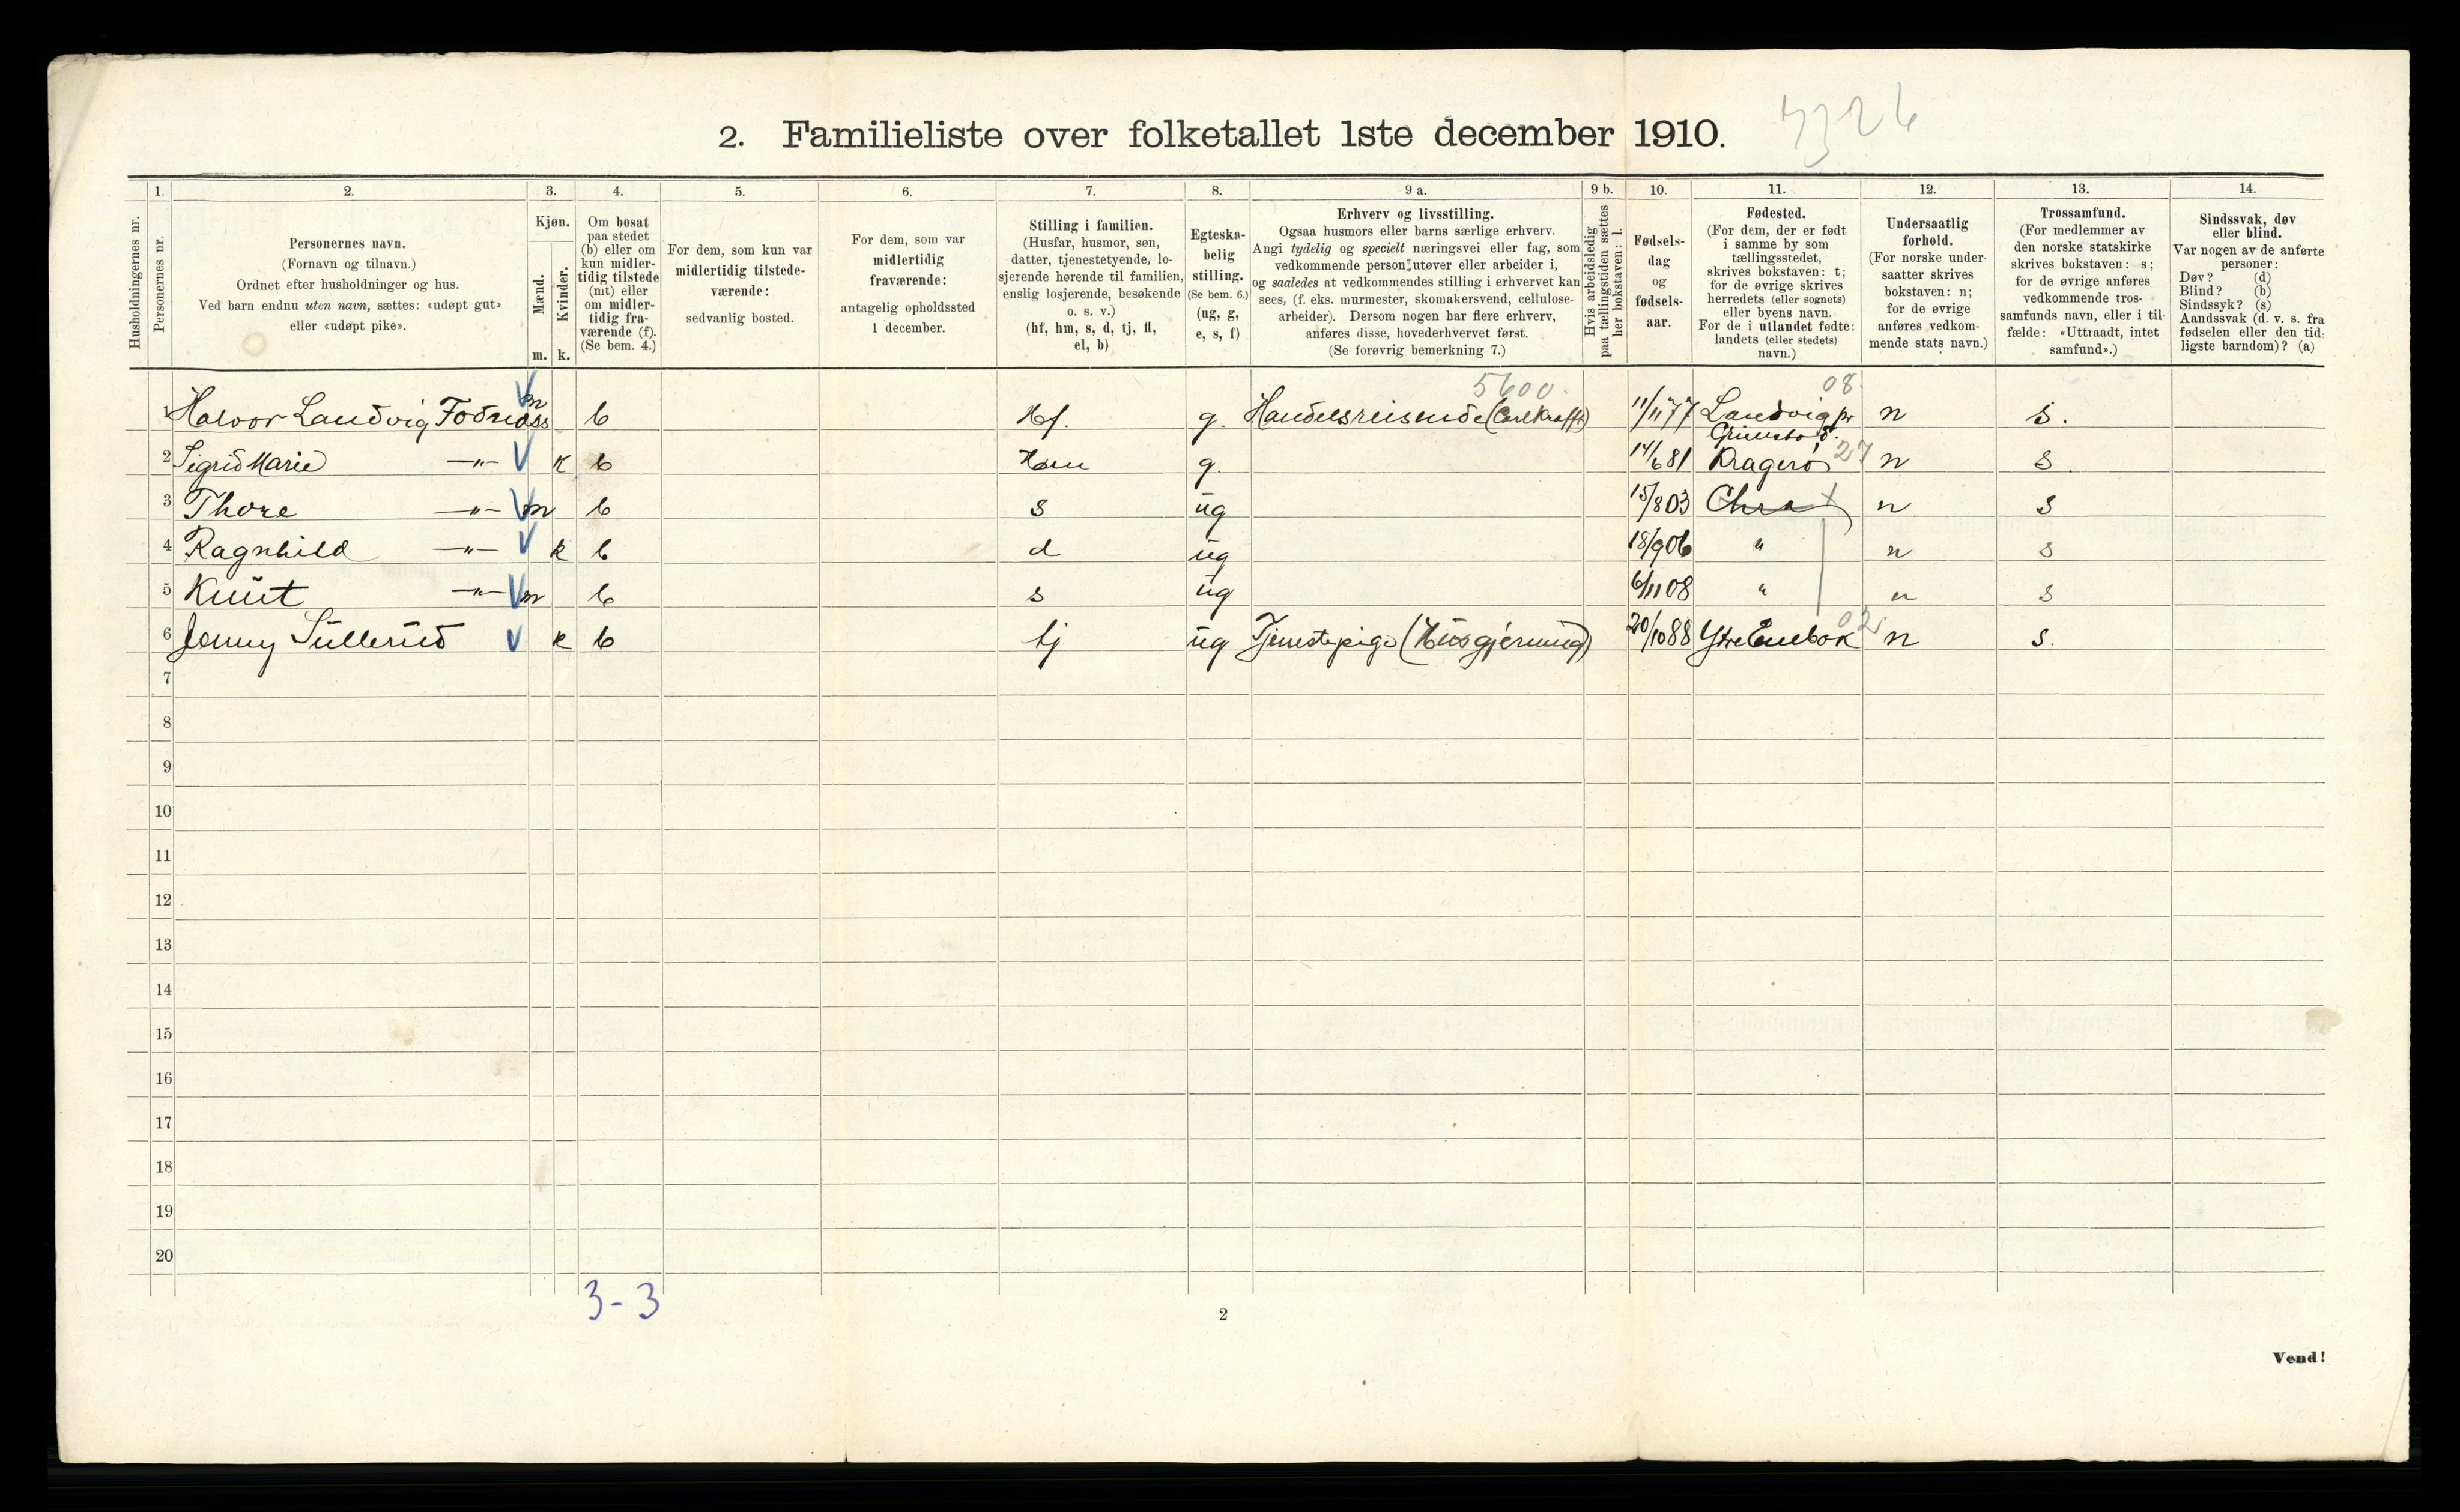 2. Familieliste over folketallet 1ste december 1910.
3326
Husholdningernes nr.
1.
Personernes nr.
2.
Personernes navn.
(Fornavn og tilnavn.)
Ordnet efter husholdninger og hus.
Ved barn endnu uten navn, sættes: «udøpt gut»
eller «udøpt pike».
3.
Kjøn.
Mænd.
Kvinder.
m. k.
4.
Om bosat
paa stedet
(b) eller om
kun midler-
tidig tilstede
(mt) eller
om midler-
tidig fra-
værende (f).
(Se bem. 4.)
5.
For dem, som kun var
midlertidig tilstede-
værende:
sedvanlig bosted.
6.
For dem, som var
midlertidig
fraværende:
antagelig opholdssted
1 december.
7.
Stilling i familien.
(Husfar, husmor, søn,
datter, tjenestetyende, lo-
sjerende hørende til familien,
enslig losjerende, besøkende
o. s. v.)
(hf, hm, s, d, tj, fl,
el, b)
8.
Egteska-
belig
stilling.
(Se bem. 6.)
(ug, g,
e, s, f)
9 a.
Erhverv og livsstilling.
Ogsaa husmors eller barns særlige erhverv.
Angi tydelig og specielt næringsvei eller fag, som
vedkommende person utøver eller arbeider i,
og saaledes at vedkommendes stilling i erhvervet kan
sees, (f. eks. murmester, skomakersvend, cellulose-
arbeider). Dersom nogen har flere erhverv,
anføres disse, hovederhvervet først.
(Se forøvrig bemerkning 7.)
9 b.
Hvis arbeidsledig
paa tællingstiden sættes
her bokstaven: l.
10.
Fødsels-
dag
og
fødsels-
aar.
11.
Fødested.
(For dem, der er født
i samme by som
tællingsstedet,
skrives bokstaven: t;
for de øvrige skrives
herredets (eller sognets)
eller byens navn.
For de i utlandet fødte:
landets (eller stedets)
navn.)
12.
Undersaatlig
forhold.
(For norske under-
saatter skrives
bokstaven: n;
for de øvrige
anføres vedkom-
mende stats navn.)
13.
Trossamfund.
(For medlemmer av
den norske statskirke
skrives bokstaven: s;
for de øvrige anføres
vedkommende tros-
samfunds navn, eller i til-
fælde: «Uttraadt, intet
samfund».)
14.
Sindssvak, døv
eller blind.
Var nogen av de anførte
personer:
Døv? (d)
Blind? (b)
Sindssyk? (s)
Aandssvak (d. v. s. fra
fødselen eller den tid-
ligste barndom)? (a)
5600. 08
1 Halvor Landvig Fodnæss m b Hf. g. Handelsreisende (Carl Krafft) 11/11 77 Landvig pr Grimstad. n s.
2 Sigrid Marie —"— k b Hm g. 14/6 81 Kragerø 27 n s.
3 Thore —"— m b s ug 15/8 03 Chra n s
4 Ragnhild —"— k b d ug 18/9 06 " n s
5 Knut —"— m b s ug 6/11 08 " n s
6 Jenny Sullerud k b tj ug Tjenestepige (Husgjerning) 20/10 88 Ytre Enebak 02 n s.
7
8
9
10
11
12
13
14
15
16
17
18
19
20
3-3
2
Vend!